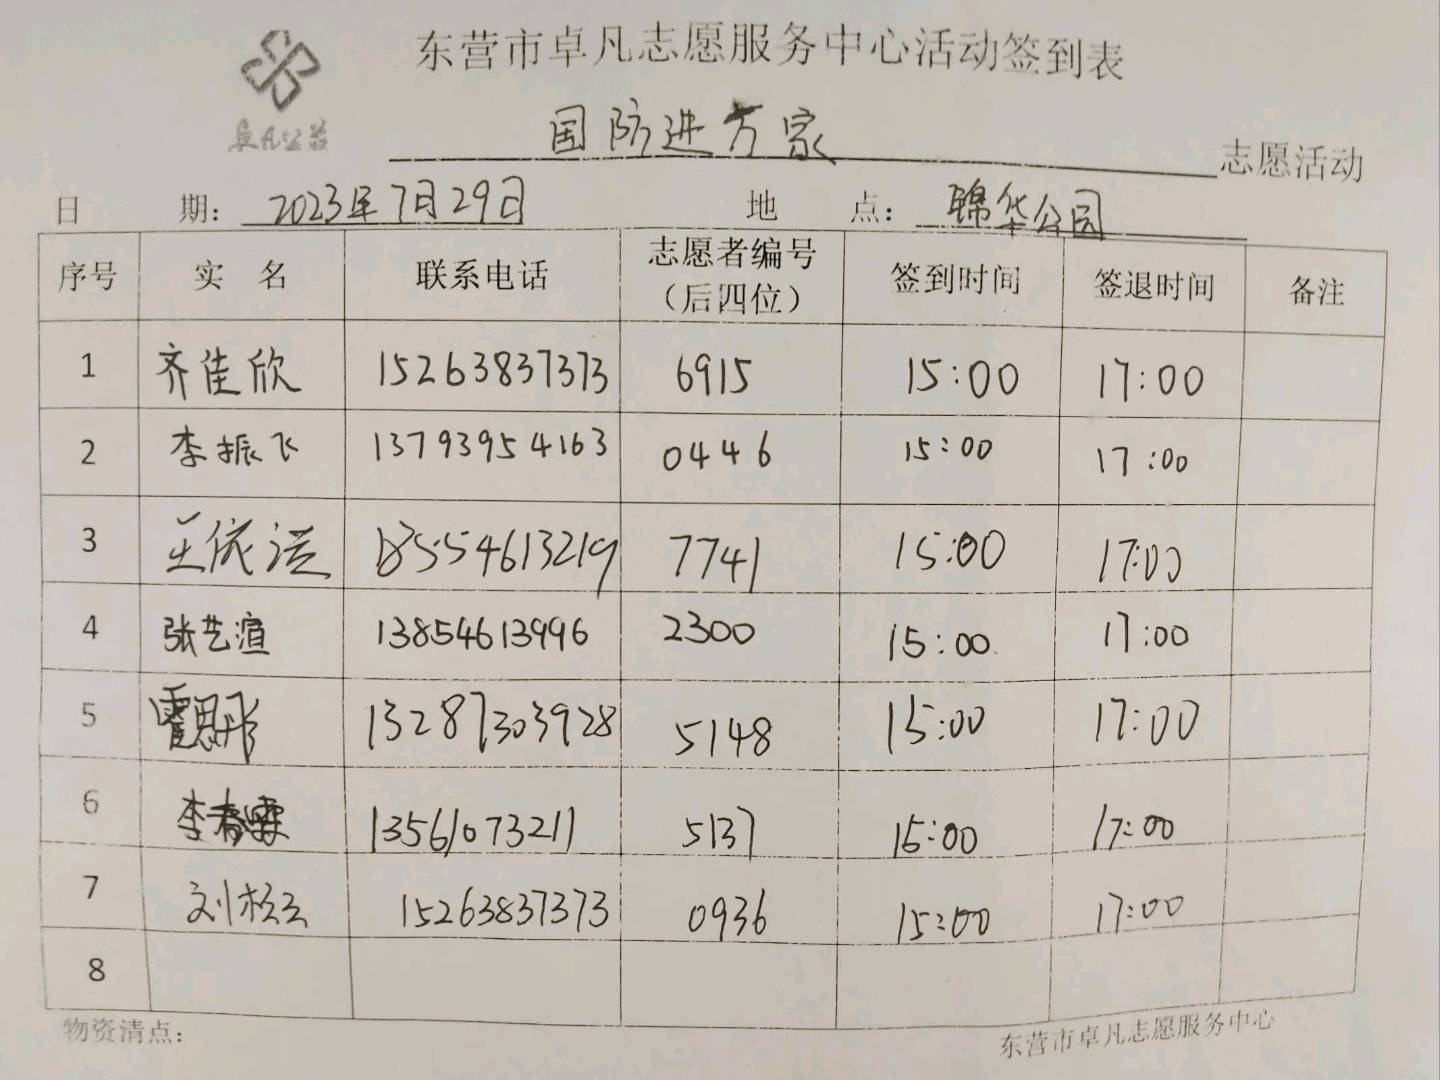 东营市卓凡志愿服务中心活动签到表
卓凡公益
国防进万家 志愿活动
日 期: 2023年7月29日 地 点: 锦华公园
序号 实 名 联系电话 志愿者编号（后四位） 签到时间 签退时间 备注
1 齐佳欣 15263837373 6915 15:00 17:00
2 李振飞 13793954163 0446 15:00 17:00
3 王依 18554613219 7741 15:00 17:00
4 张艺渲 13854613996 2300 15:00 17:00
5 霍思彤 13287303928 5148 15:00 17:00
6 李春霖 13561073211 5137 15:00 17:00
7 刘 15263837373 0936 15:00 17:00
8
物资清点: 东营市卓凡志愿服务中心